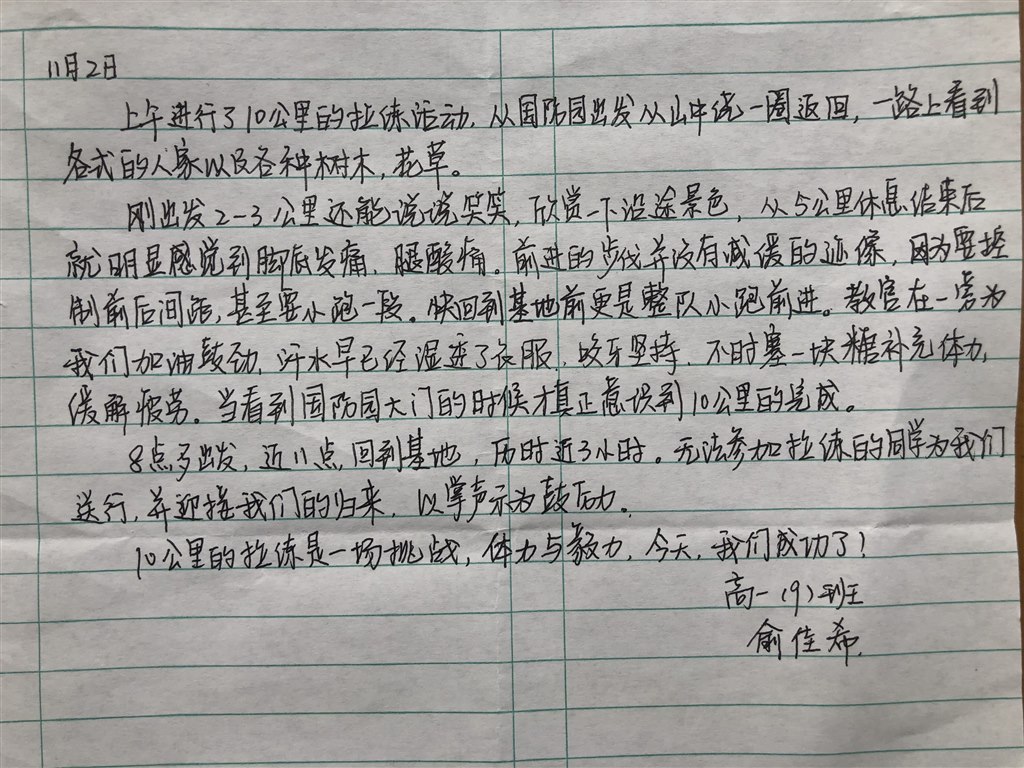 11月2日
上午进行了10公里的拉练活动，从国防园出发从山中绕一圈返回，一路上看到
各式的人家以及各种树木，花草。
刚出发2-3公里还能说说笑笑，欣赏一下沿途景色，从5公里休息结束后
就明显感觉到脚底发痛、腿酸痛。前进的步伐并没有减缓的迹像，因为要控
制前后间距，甚至要小跑一段。快回到基地前更是整队小跑前进。教官在一旁为
我们加油鼓劲，汗水早已经湿透了衣服，咬牙坚持，不时塞一块糖补充体力，
缓解疲劳。当看到国防园大门的时候才真正意识到10公里的完成。
8点多出发，近11点回到基地，历时近3小时。无法参加拉练的同学为我们
送行，并迎接我们的归来，以掌声示为鼓励。
10公里的拉练是一场挑战，体力与毅力，今天，我们成功了！
高一（9）班
俞佳希